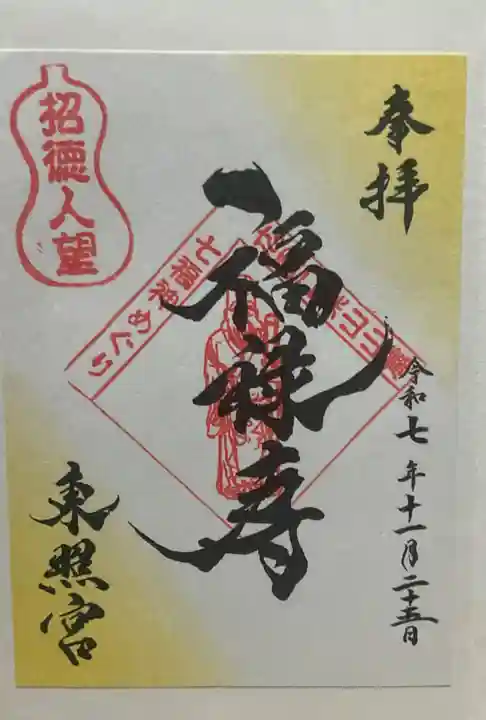 奉拝
令和七年十一月二十五日
福禄寿
七福神めぐり
招徳人望
東照宮